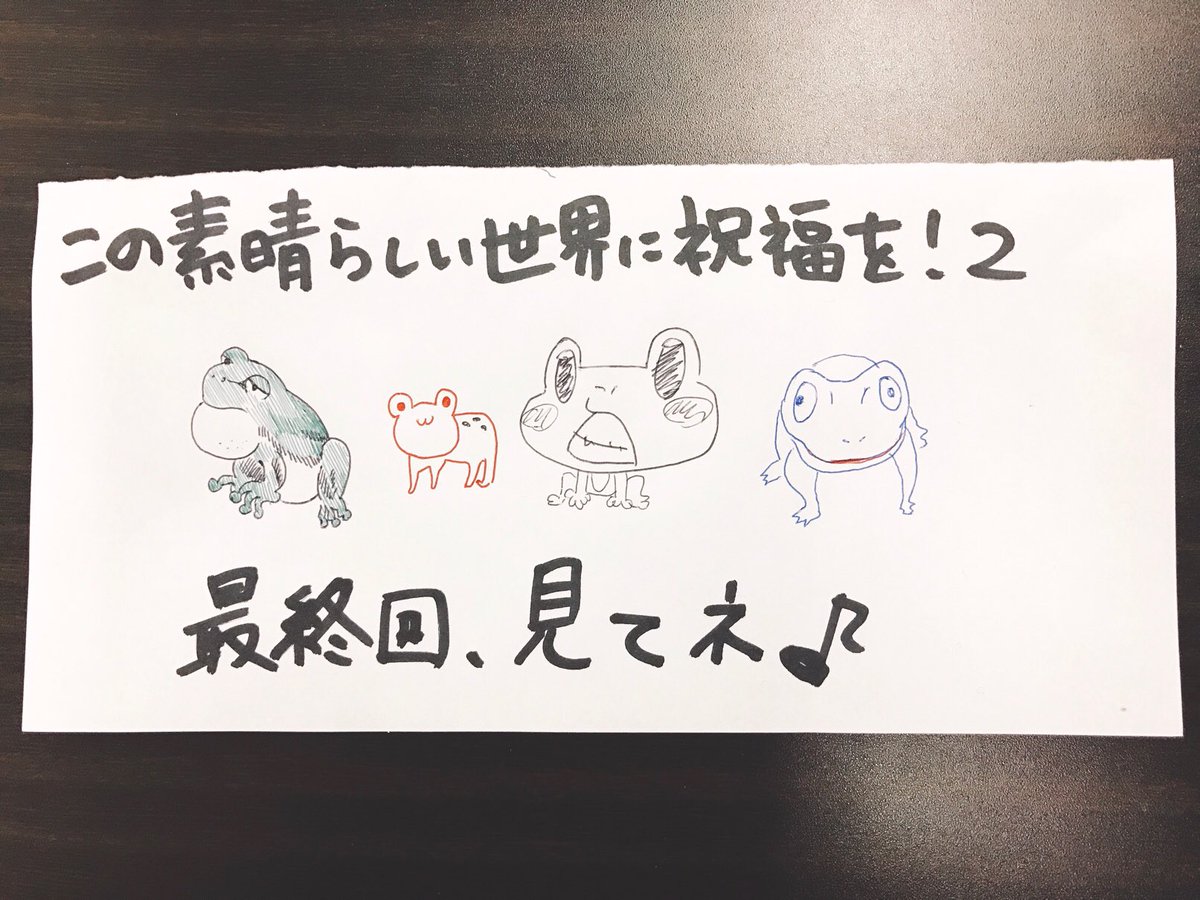 この素晴らしい世界に祝福を!2
最終回、見てネ♪